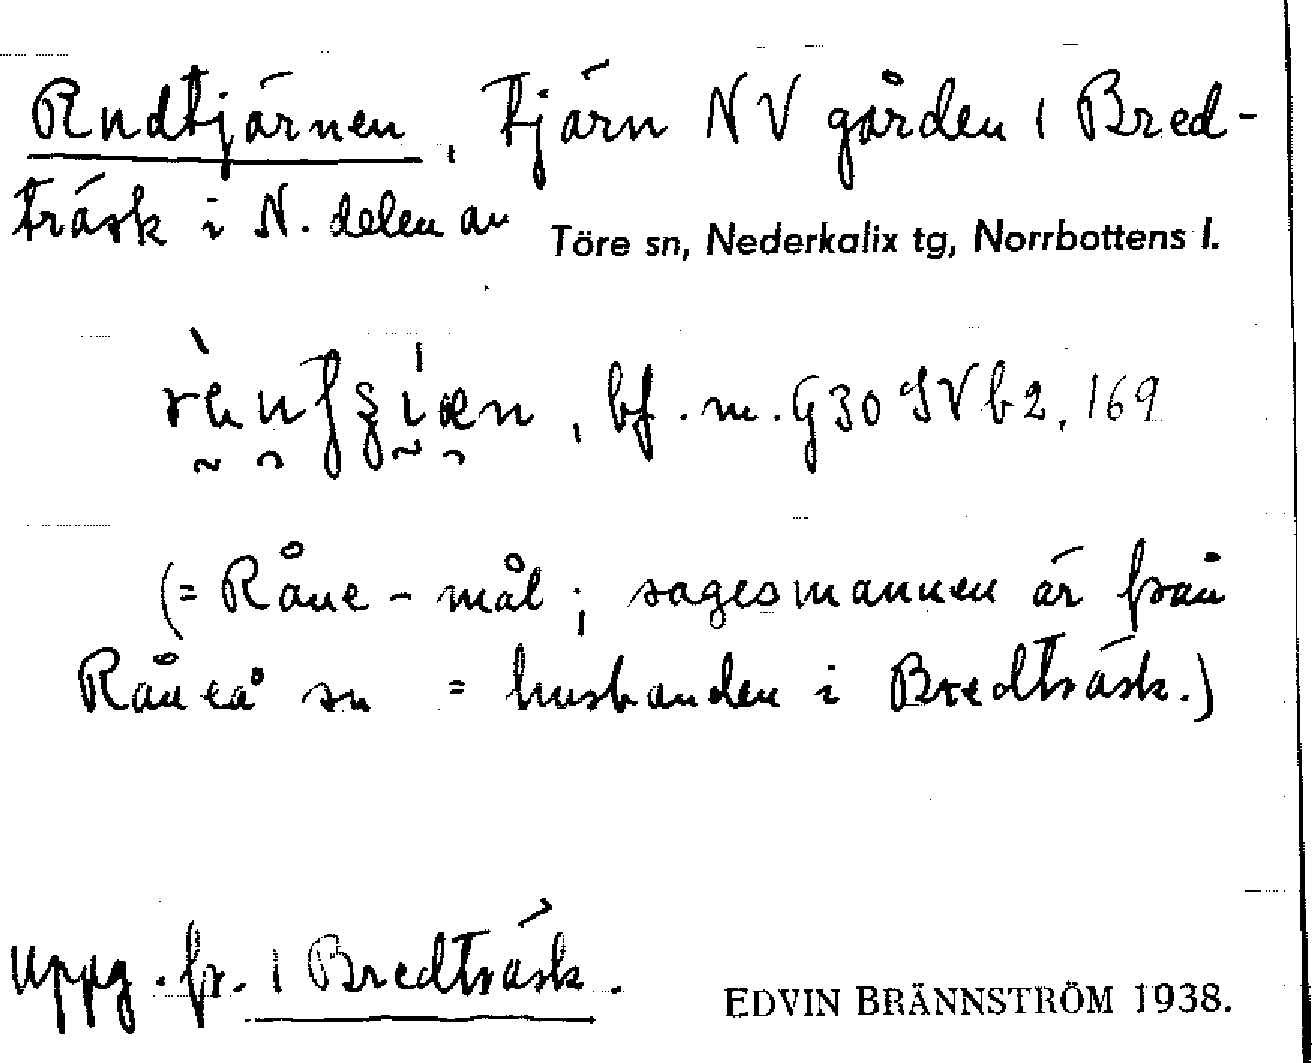 Rndtjärnen, tjärn NV gården 1 Bred-
träsk i N. delen av Töre sn, Nederkalix tg, Norrbottens l.
, bf. m. G30 SV b2, 169
(= Råne-mål; sagesmannen är från
Råneå sn = husbonden i Bredträsk.)
Uppg. fr. 1 Bredträsk.
EDVIN BRÄNNSTRÖM 1938.